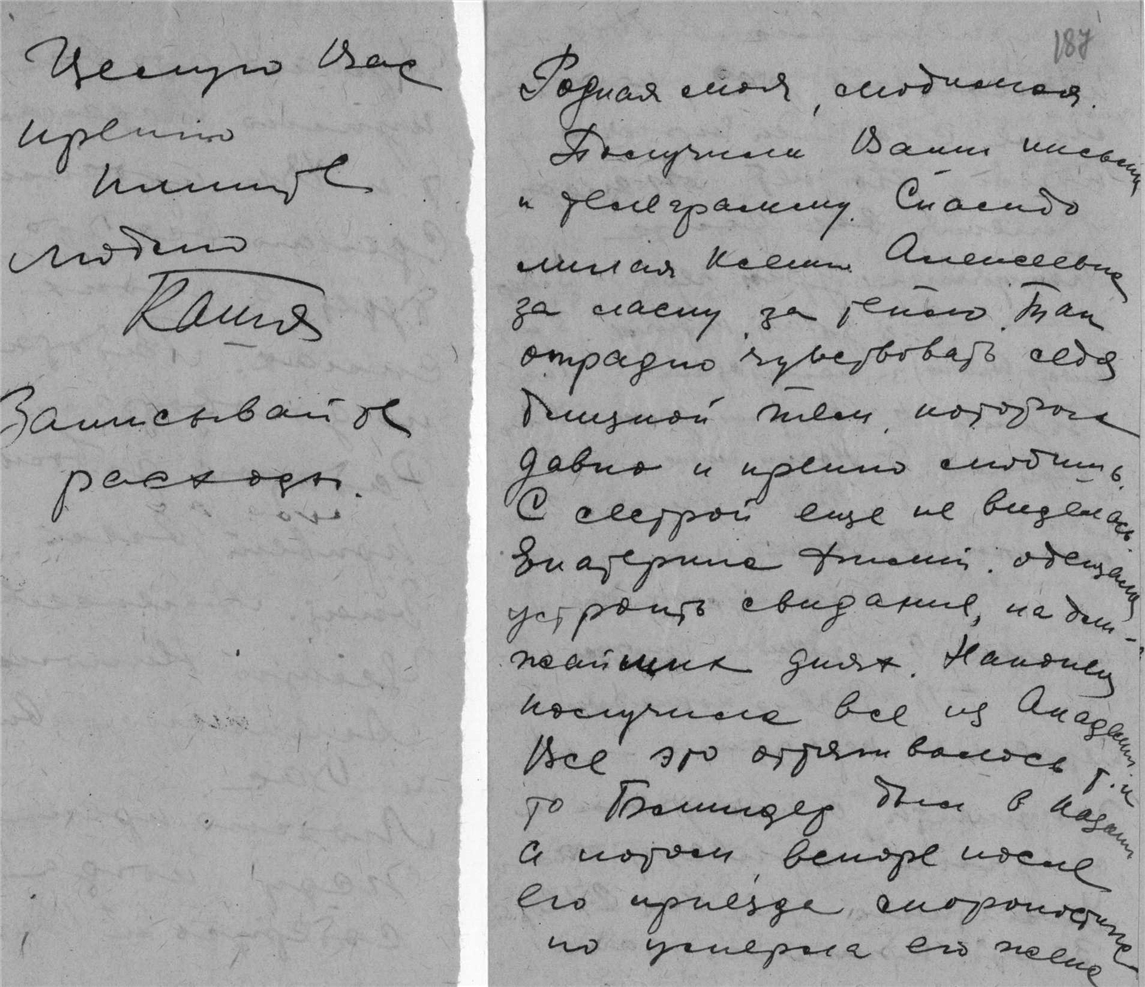 Целую Вас
крепко
пишите
люблю
Катя
Записывайте
расходы.
187
Родная моя, любимая.
Получила Ваши письма
и телеграмму. Спасибо
милая Ксения Алексеевна
за ласку, за тепло. Так
отрадно чувствовать себя
близкой тем, которых
давно и крепко любишь.
С сестрой еще не виделась.
Екатерина обещала
устроить свидание, на бли-
жайших днях. Наконец
получила все из Академии.
Все это оттягивалось т.к
то был в Казани
а потом вскоре после
его приезда скоропостиж
но умерла его жена